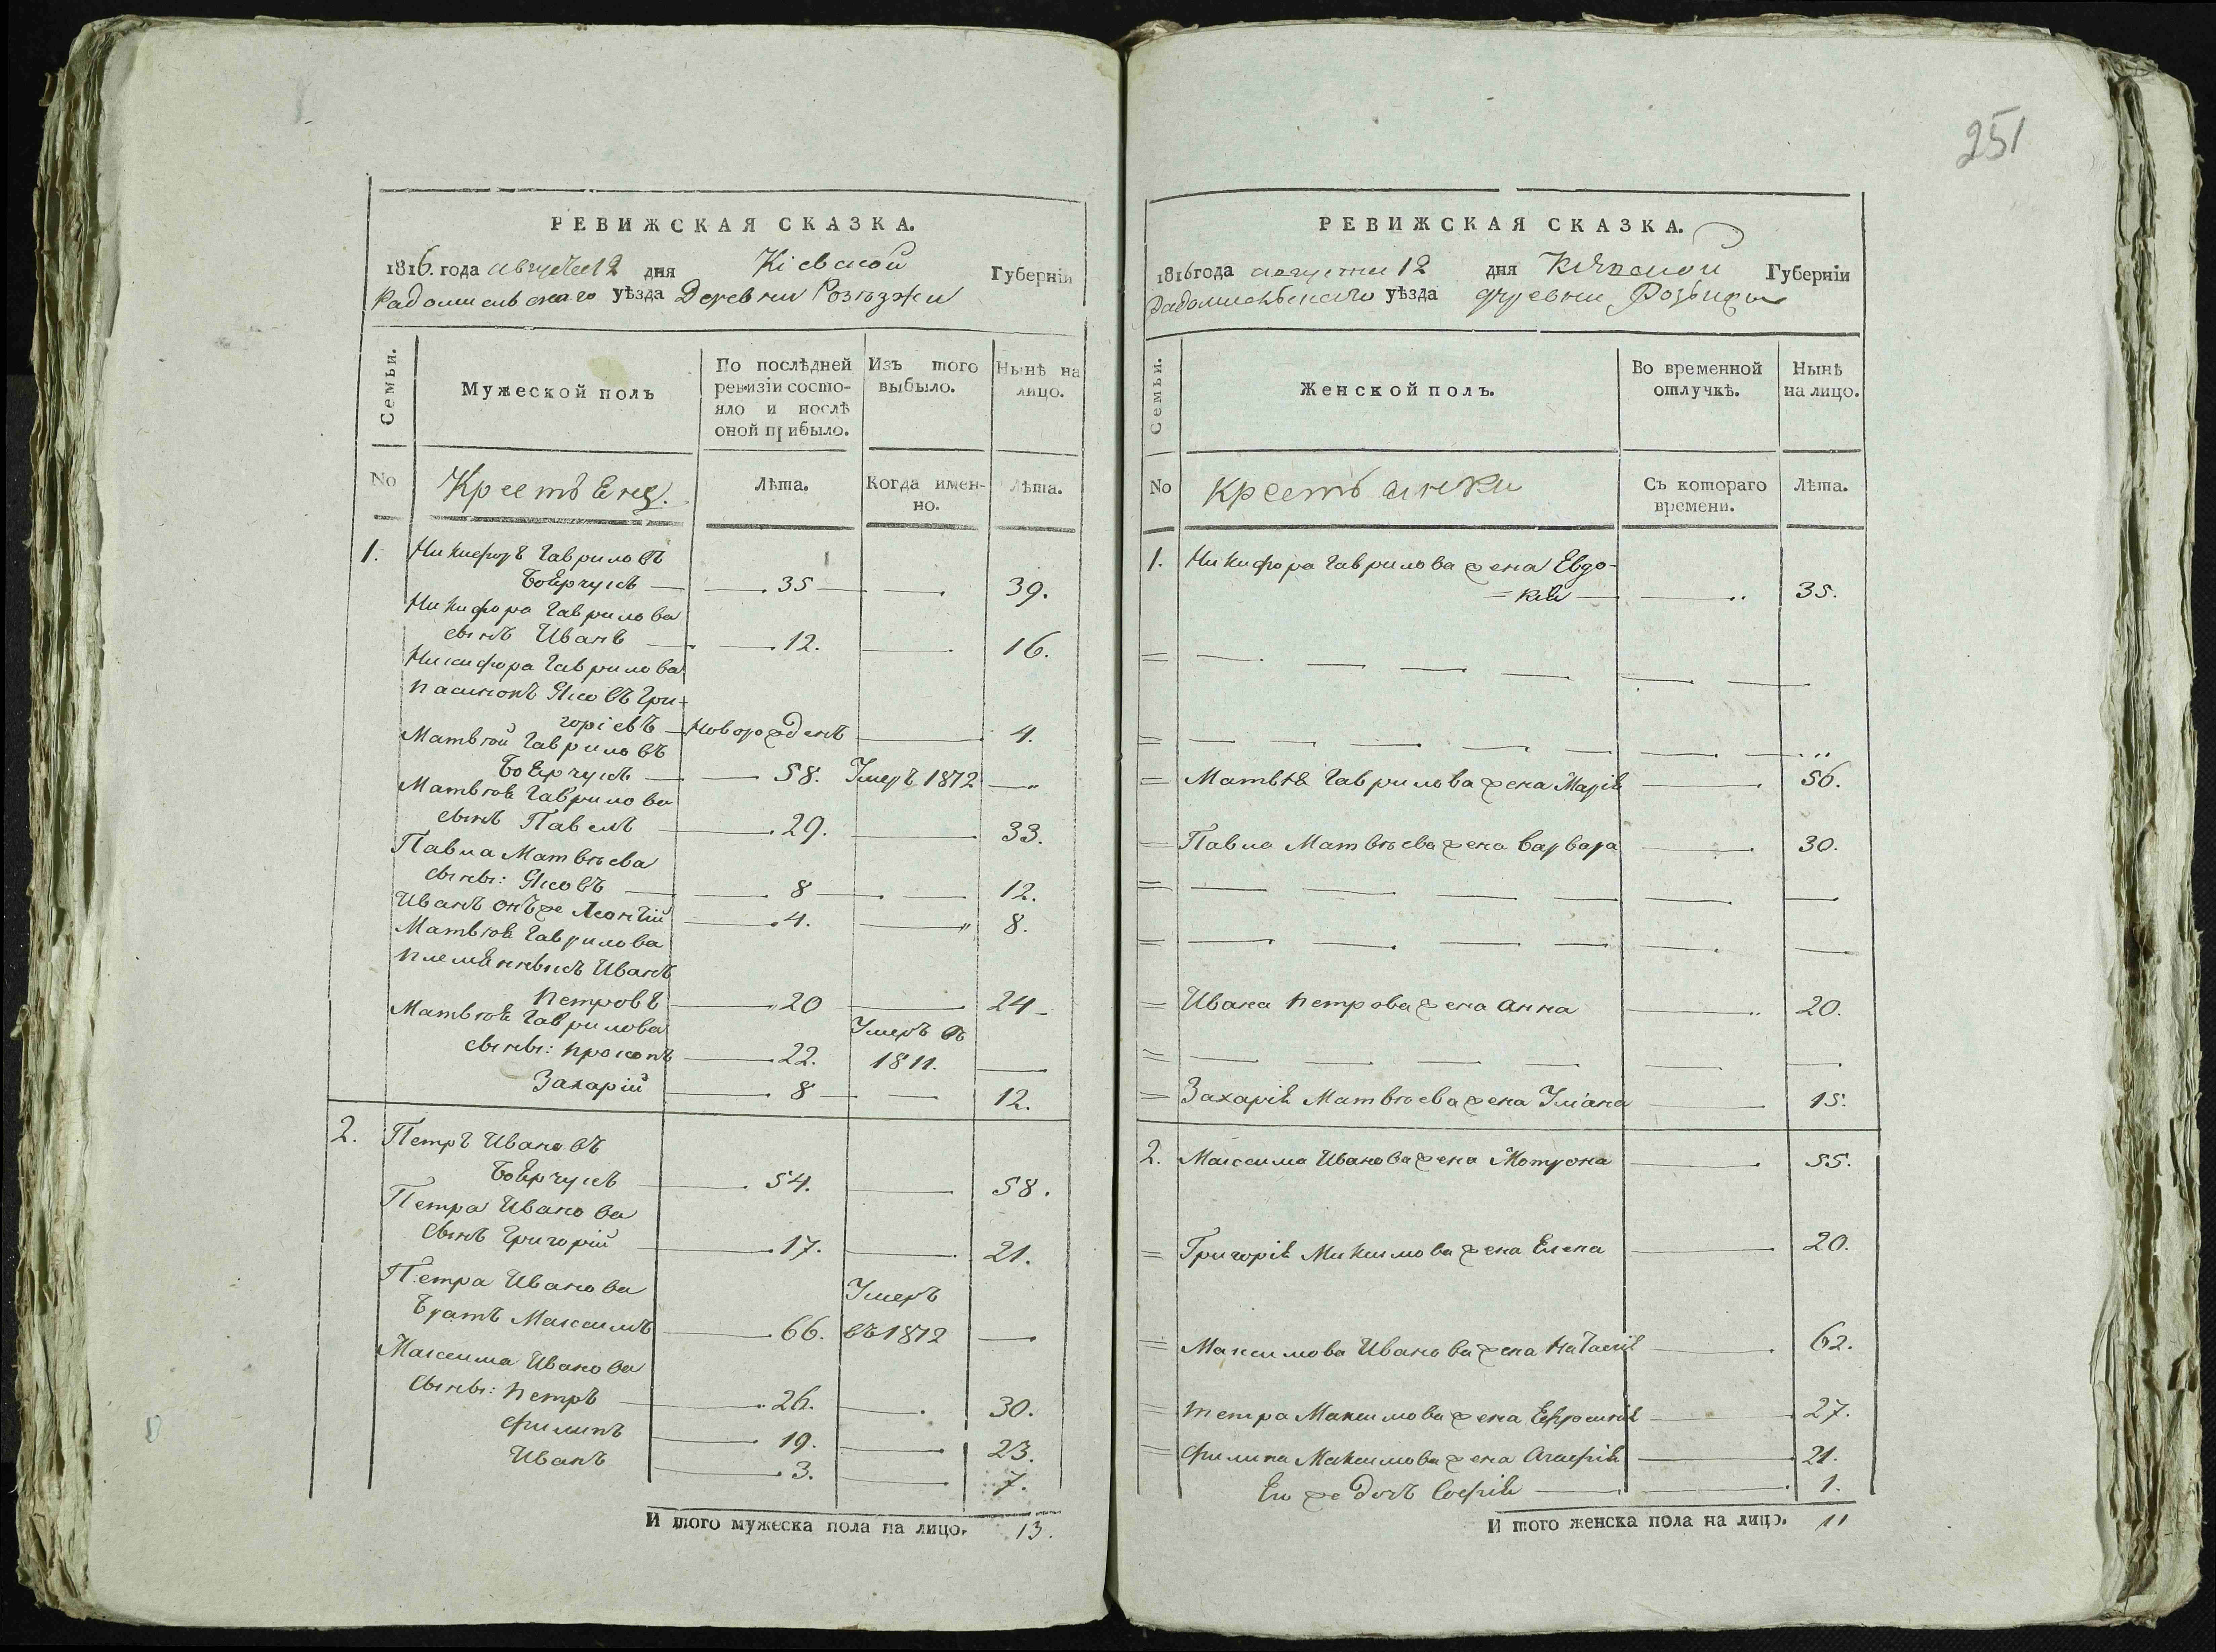 РЕВИЖСКАЯ СКАЗКА.
1816. года августа 12 дня Кіевской Губерніи
Радомысльскаго уѣзда Деревни Розъѣзжи
Семьи.
Мужеской полъ
По послѣдней ревизіи состо-
яло и послѣ
оной прибыло.
Изъ того
выбыло.
Нынѣ на
лицо.
No
Лѣта.
Когда имен-
но.
Лѣта.
1. Никифоръ Гавриловъ
Боярчукъ 35 39.
Никифора Гаврилова
сынъ Иванъ 12. 16.
Никифора Гаврилова
пасынокъ Яковъ Гри-
горіевъ Новорожденъ 4.
Матвѣй Гавриловъ
Боярчукъ 58. Умеръ 1812
Матвѣя Гаврилова
сынъ Павелъ 29. 33.
Павла Матвѣева
сыны: Яковъ 8 12.
Иванъ онъ же Леонтій 4. 8.
Матвѣя Гаврилова
племянникъ Иванъ
Петровъ 20 24
Матвѣя Гаврилова
сыны: Прокопъ 22. Умеръ въ
1811.
Захарій 8 12.
2. Петръ Ивановъ
Боярчукъ 54. 58.
Петра Иванова
сынъ Григорій 17. 21.
Петра Иванова
братъ Максимъ 66. Умеръ
въ 1812
Максима Иванова
сыны: Петръ 26. 30.
Филипъ 19. 23.
Иванъ 3. 7.
И того мужеска пола на лицо. 13.
251
РЕВИЖСКАЯ СКАЗКА.
1816 года августа 12 дня Кіевской Губерніи
Радомысльскаго уѣзда деревни
Семьи.
Женской полъ.
Во временной
отлучкѣ.
Нынѣ
на лицо.
No
Крестьянки
Съ котораго
времени.
Лѣта.
1. Никифора Гаврилова жена Евдо-
кия 35.
Матвѣя Гаврилова жена Марія 56.
Павла Матвѣева жена Варвара 30.
Ивана Петрова жена Анна 20.
Захарія Матвѣева жена Уліана 15.
2. Максима Иванова жена Мотрона 55.
Григорія Максимова жена Елена 20.
Максимова Иванова жена Наталія 62.
Петра Максимова жена Ефросинія 27.
Филипа Максимова жена Агафія 21.
Ею же дочь Софія 1.
И того женска пола на лицо. 11